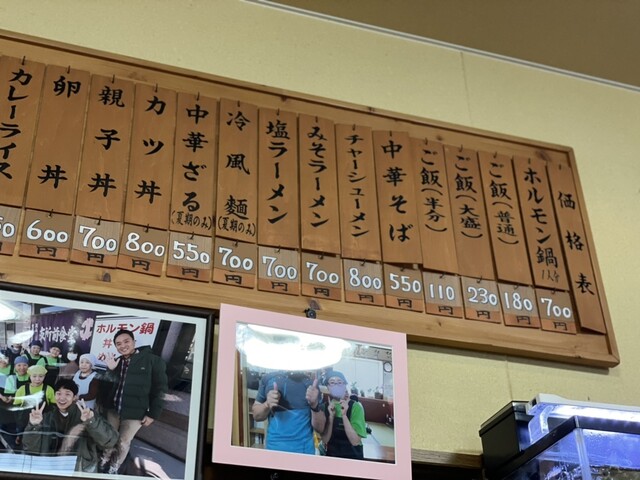 価格表
ホルモン鍋 1人分 700円
ご飯(普通) 180円
ご飯(大盛) 230円
ご飯(半分) 110円
中華そば 550円
チャーシューメン 800円
みそラーメン 700円
塩ラーメン 700円
冷風麺(夏期のみ) 700円
中華ざる(夏期のみ) 550円
カツ丼 800円
親子丼 700円
卵丼 600円
カレーライス
ホルモン鍋